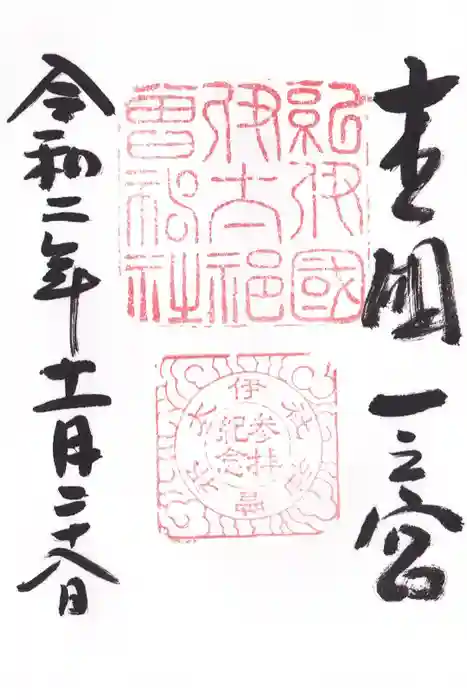 國一之宮
紀伊國
伊太祁
曾神社
伊太祁曽神社
参拝
紀念
令和二年十一月二十八日